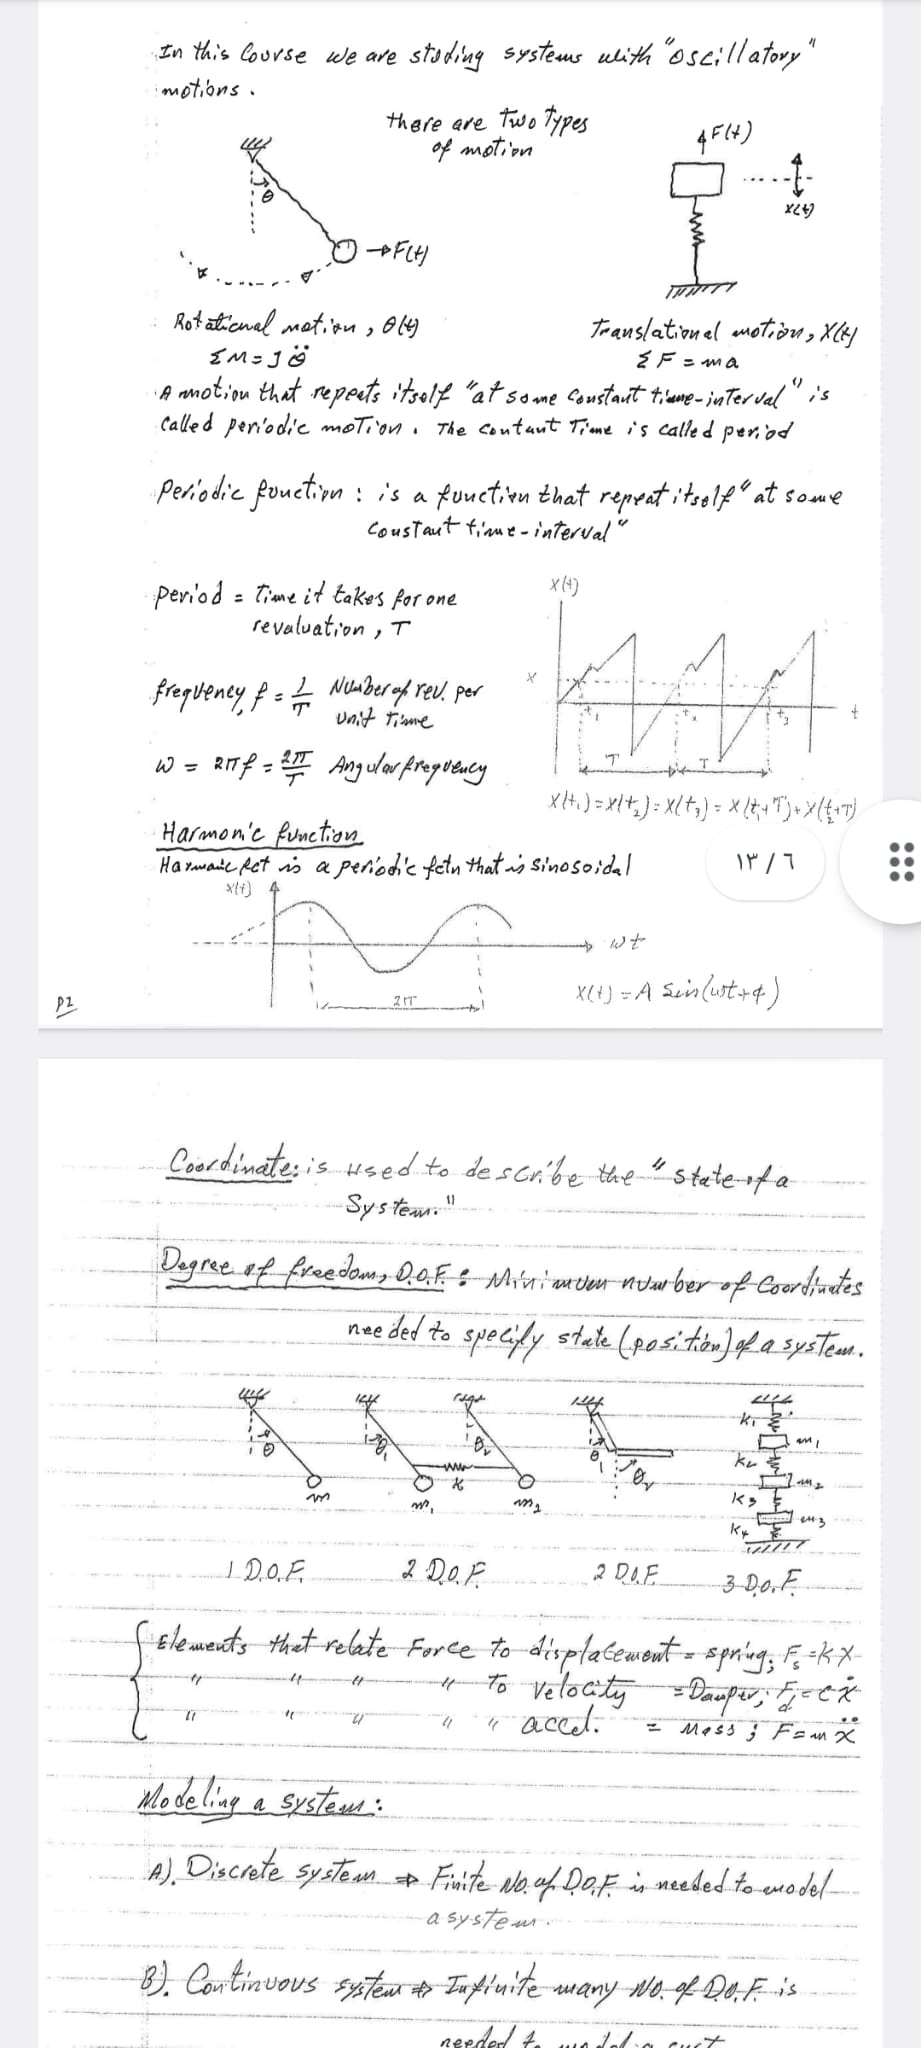 In this Course we are studing systems with "oscillatory"
motions.
there are Two Types
of motion
F(t)
x(t)
θ
F(t)
Rotational motion, θ(t)
ΣM = Jθ̈
Translational motion, X(t)
ΣF = ma
A motion that repeats itself "at some Constant time-interval" is
Called periodic moTion. The contant Time is called period
Periodic function : is a function that repeat itself "at some
Constant time-interval"
Period = Time it takes for one
revaluation, T
frequency, f = 1/T Number of rev. per
unit Time
ω = 2πf = 2π/T Angular frequency
X(t)
x
t₁
t₂
t₃
t
T
T
X(t₁)=X(t₂)=X(t₃)=X(t₁+T)=X(t₂+T)
Harmonic function
Harmonic fct is a periodic fctn that is sinosoidal
١٣/٦
x(t)
ωt
2π
X(t) = A Sin(ωt+φ)
P2
Coordinate: is used to describe the "state of a
System."
Degree of freedom, D.O.F. : Minimum number of Coordinates
needed to specify state (position) of a system.
θ
m
θ₁
θ₂
K
m₁
m₂
θ₁
θ₂
K₁
m₁
K₂
m₂
K₃
m₃
K₄
1 D.O.F.
2 D.O.F.
2 D.O.F.
3 D.O.F.
Elements that relate Force to displacement = spring; Fₛ = KX
" " " " To velocity = Damper; F_d = cẋ
" " " " " accel. = Mass; F = mẍ
Modeling a system:
A). Discrete system ⇒ Finite No. of D.O.F. is needed to model
a system.
B). Continuous system ⇒ Infinite many No. of D.O.F. is
needed to model a syst